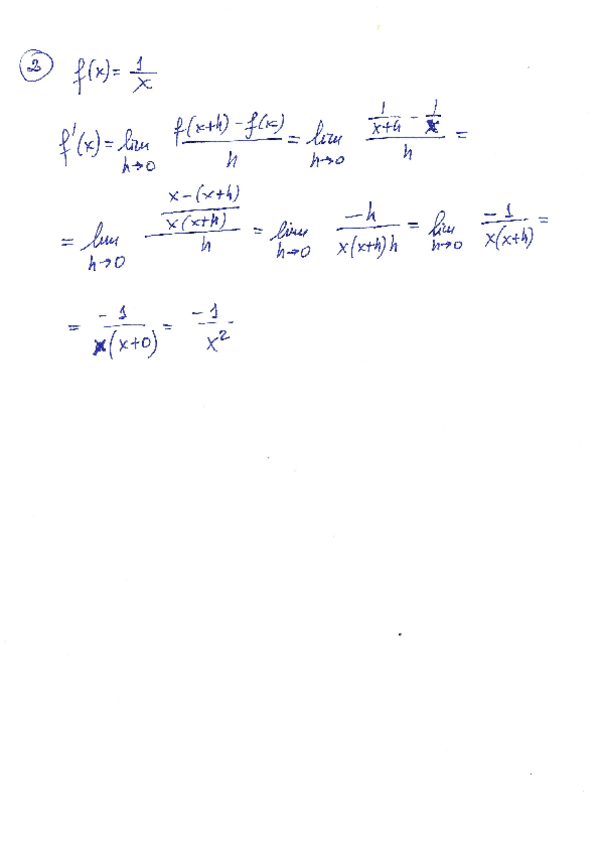 ② f(x) = 1/x
f'(x) = lim h→0 (f(x+h) - f(x))/h = lim h→0 (1/(x+h) - 1/x)/h =
= lim h→0 ((x-(x+h))/(x(x+h)))/h = lim h→0 -h/(x(x+h)h) = lim h→0 -1/(x(x+h)) =
= -1/(x(x+0)) = -1/x²